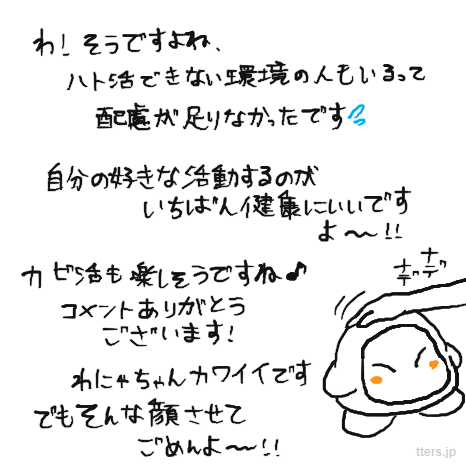 わ！そうですよね、
ハト活できない環境の人もいるって
配慮が足りなかったです
自分の好きな活動するのが
いちばん健康にいいです
よ〜！！
カビ活も楽しそうですね♪
コメントありがとう
ございます！
ナデナデ
わにゃちゃんカワイイです
でもそんな顔させて
ごめんよ〜！！
tters.jp